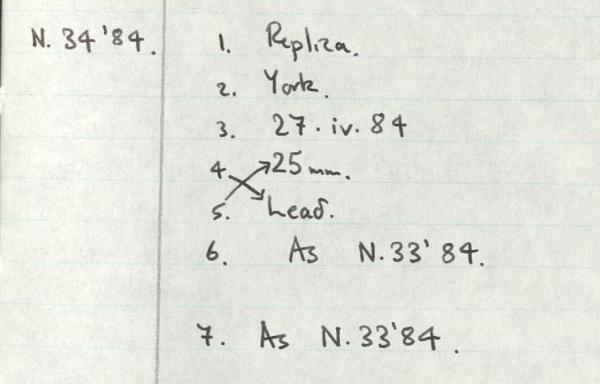 N. 34'84. 1. Repliza.
2. York.
3. 27.iv.84
4 25mm.
5. Lead.
6. As N.33'84.
7. As N.33'84.